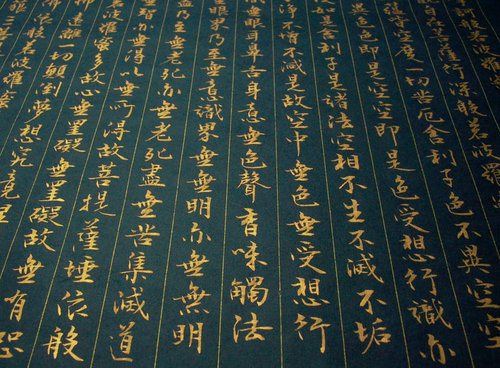 般若波羅蜜
菩薩行深般若波羅
皆空度一切苦厄舍利子色不異空空
異色色即是空空即是色受想行識亦
是舍利子是諸法空相不生不滅不垢
淨不增不減是故空中無色無受想行
眼耳鼻舌身意無色聲香味觸法
眼界乃至無意識界無無明亦無無明
乃至無老死亦無老死盡無苦集滅道
智亦無得以無所得故菩提薩埵依般
羅蜜多故心無罣礙無罣礙故無有恐
遠離一切顛倒夢想究竟涅
依般若波羅蜜